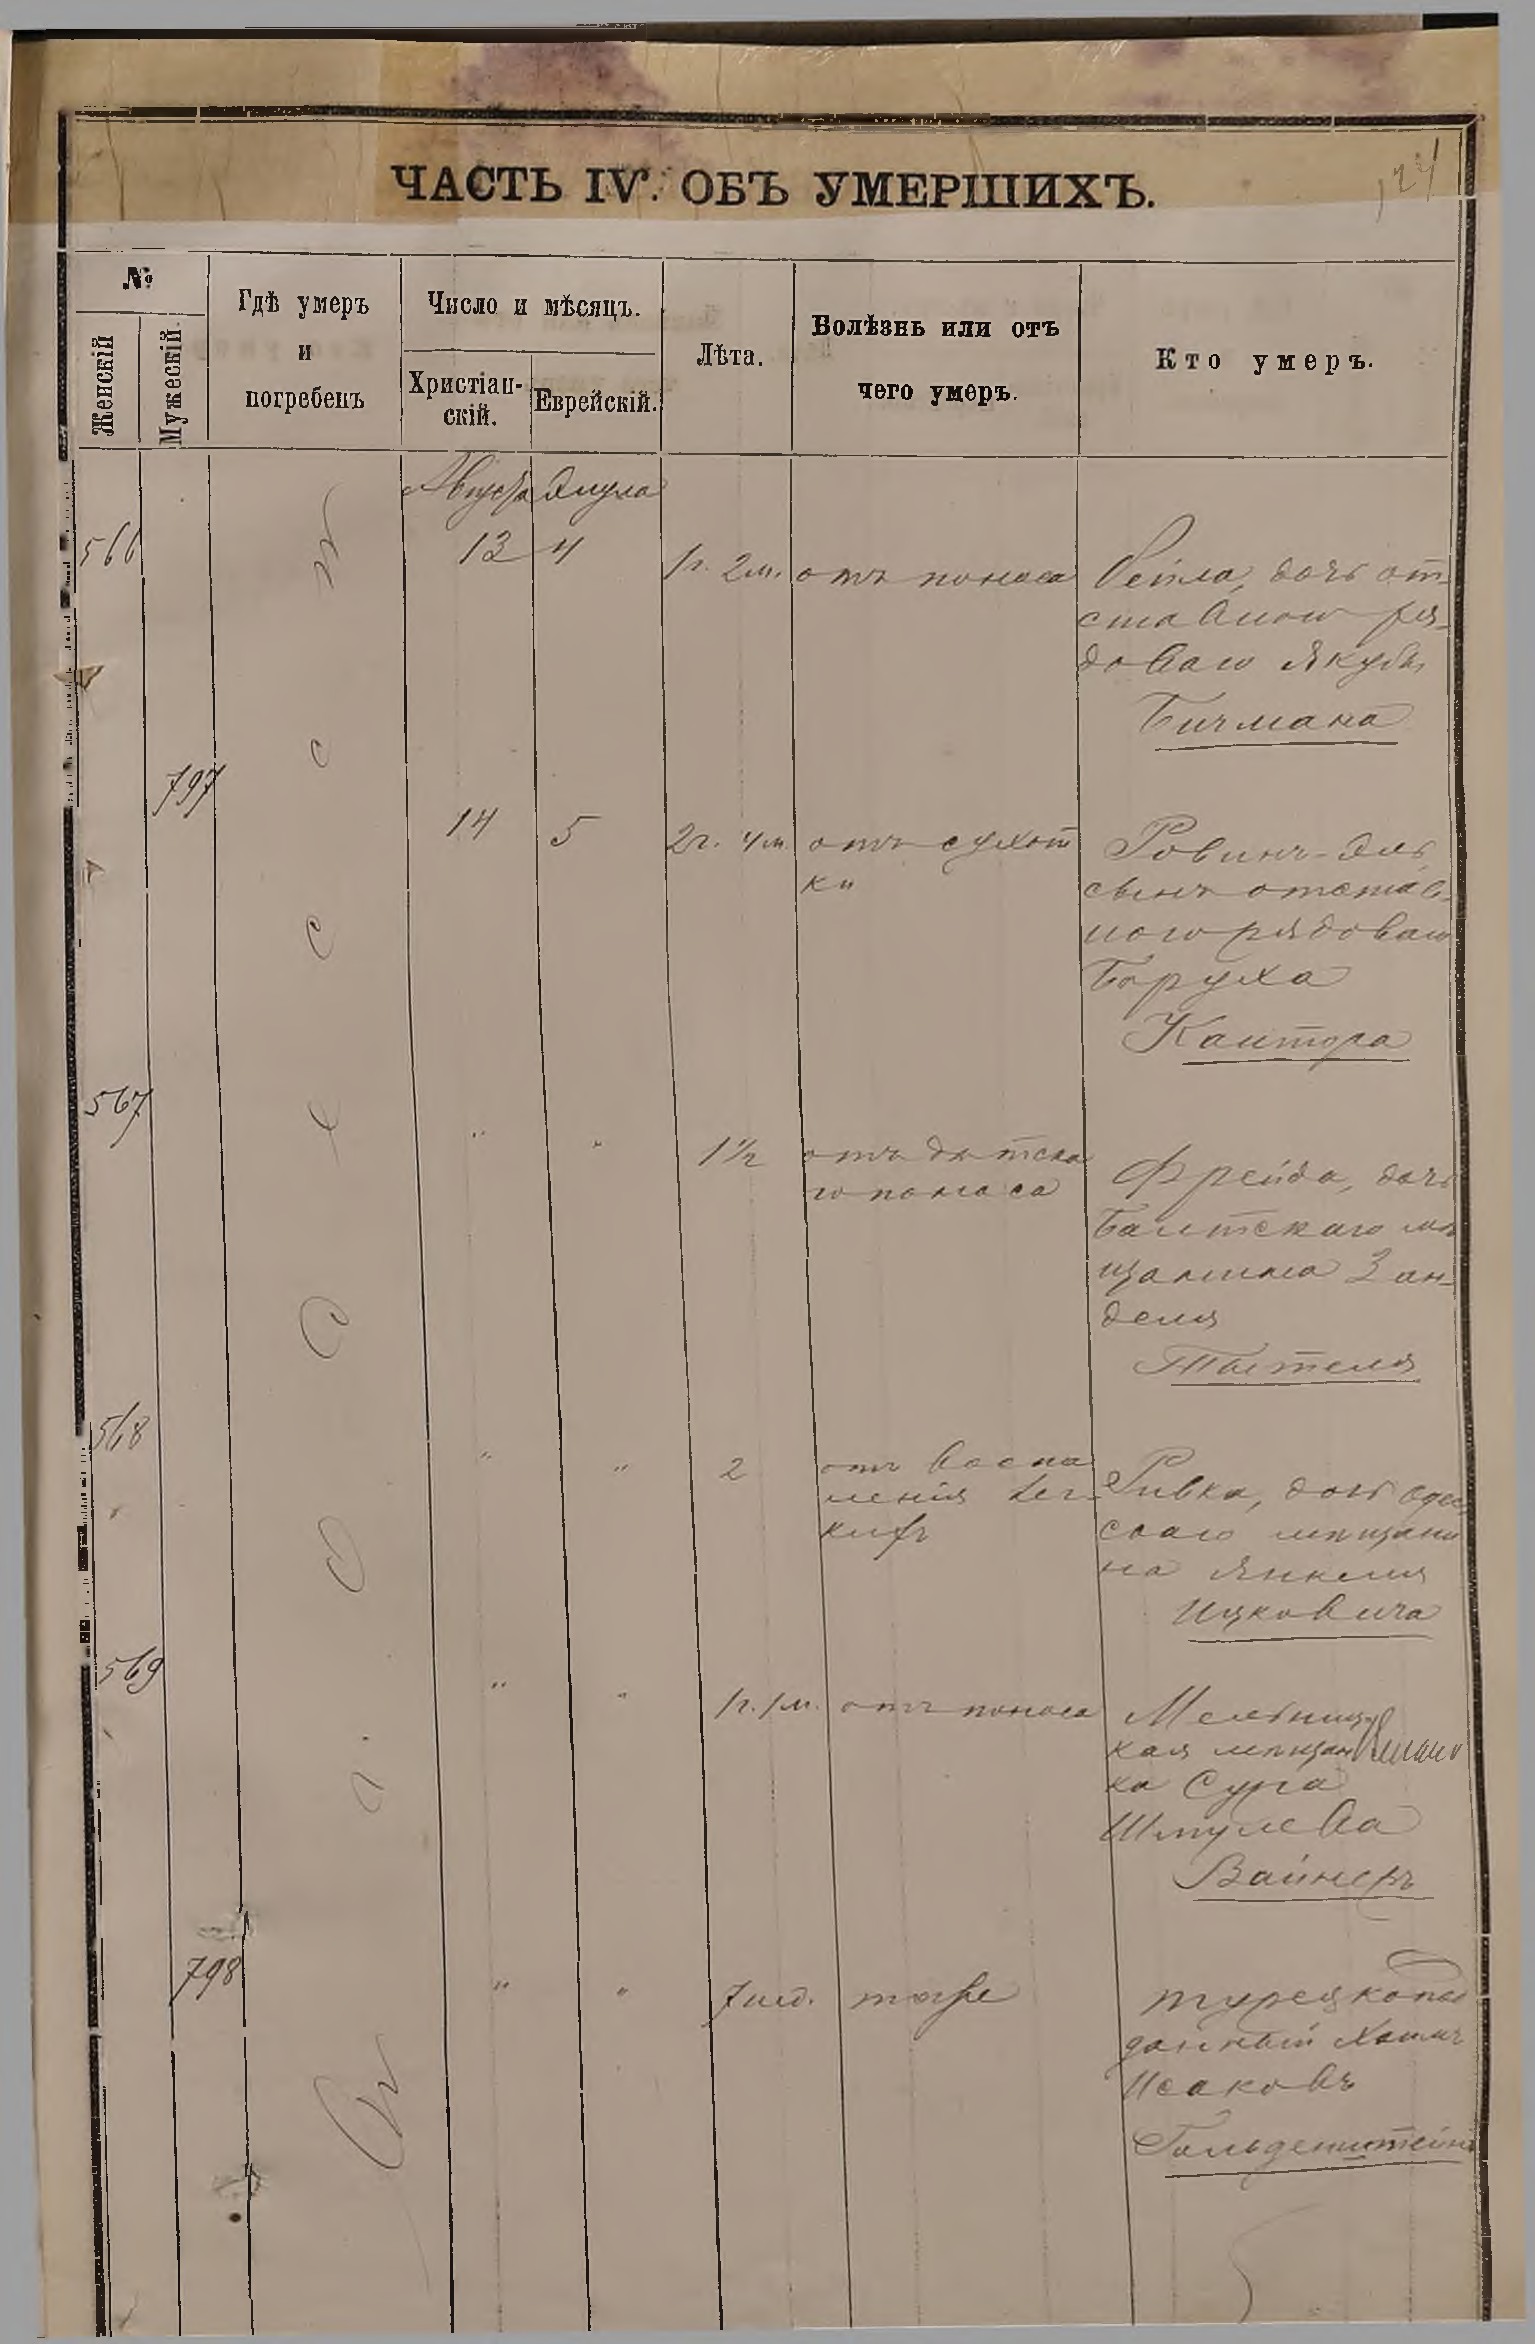 124
ЧАСТЬ IV. ОБЪ УМЕРШИХЪ.
№
Женскій
Мужескій
Гдѣ умеръ
и
погребенъ
Число и мѣсяцъ.
Христіан-
скій.
Еврейскій.
Лѣта.
Болѣзнь или отъ
чего умеръ.
Кто умеръ.
Августа Элула
566 13 4 1г. 2м. отъ поноса
Рейла, дочь от-
ставного ря-
доваго Якуба
Бичмана
797 14 5 2г. 4м. отъ сухот
ки
Рувинъ-Эль
сынъ отстав-
ного рядоваго
Боруха
Кантора
567 " " 1½ отъ дѣтска
го поноса
Фрейда, дочь
Балтскаго мѣ
щанина Зан-
деля
568 " " 2 отъ воспа
ленія лег-
кихъ
Ривка, дочь одес
скаго мѣщани
на Янкеля
Ицковича
569 " " 1г. 1м. отъ поноса
Мельниц-
кая мѣщан
ка Сура
Шмулева
Вайнеръ
798 " " 7 нед. тоже
турецкопод
данный Хаимъ
Исаковъ
Гольденштейнъ